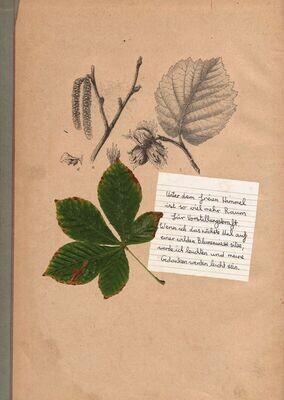 Unter dem freien Himmel
ist so viel mehr Raum
für Vorstellungskraft.
Wenn ich das nächste Mal auf
einer wilden Blumenwiese sitze,
werde ich leuchten und meine
Gedanken werden leicht sein.